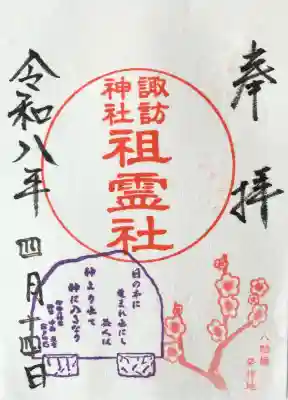 奉拝
諏訪
神社
祖霊社
令和八年四月十四日
日の本に
生まれ出にし
益人は
神より出て
神に入るなり
八幡橋